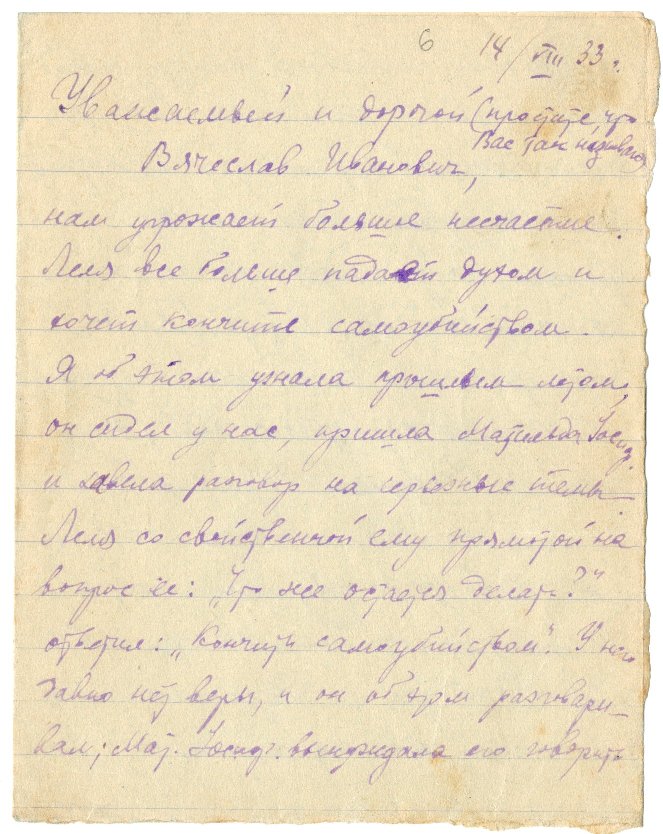 6 14/VIII 33 г.
Уважаемый и дорогой (простите, что
Вас так называю)
Вячеслав Иванович,
нам угрожает большое несчастье.
Леля все больше падает духом и
хочет кончить самоубийством.
Я об этом узнала прошлым летом,
он сидел у нас, пришла Матильда Иосиф.
и завела разговор на серьезные темы.
Леля со свойственной ему прямотой на
вопрос ее: „Что же остается делать?“
ответил: „Кончить самоубийством“. У него
давно нет веры, и он об этом разговари-
вал; Мат. Иосиф. вынуждала его говорить